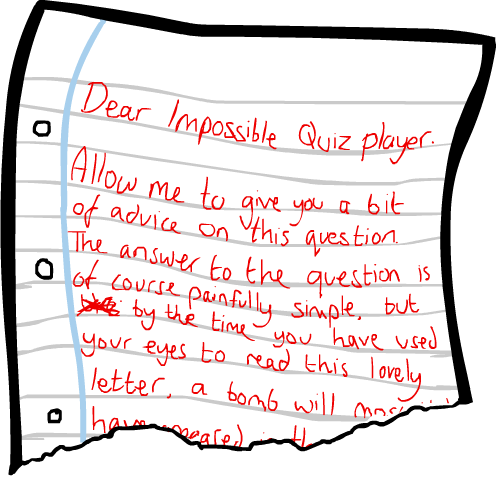 Dear Impossible Quiz player.
Allow me to give you a bit
of advice on this question.
The answer to the question is
of course painfully simple, but
by the time you have used
your eyes to read this lovely
letter, a bomb will